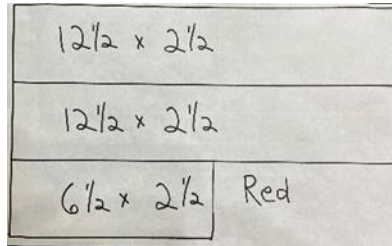 12 1/2 x 2 1/2
12 1/2 x 2 1/2
6 1/2 x 2 1/2 Red